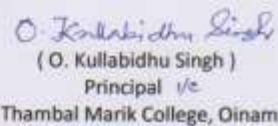 O. Kullabidhu Singh
( O. Kullabidhu Singh )
Principal i/c
Thambal Marik College, Oinam